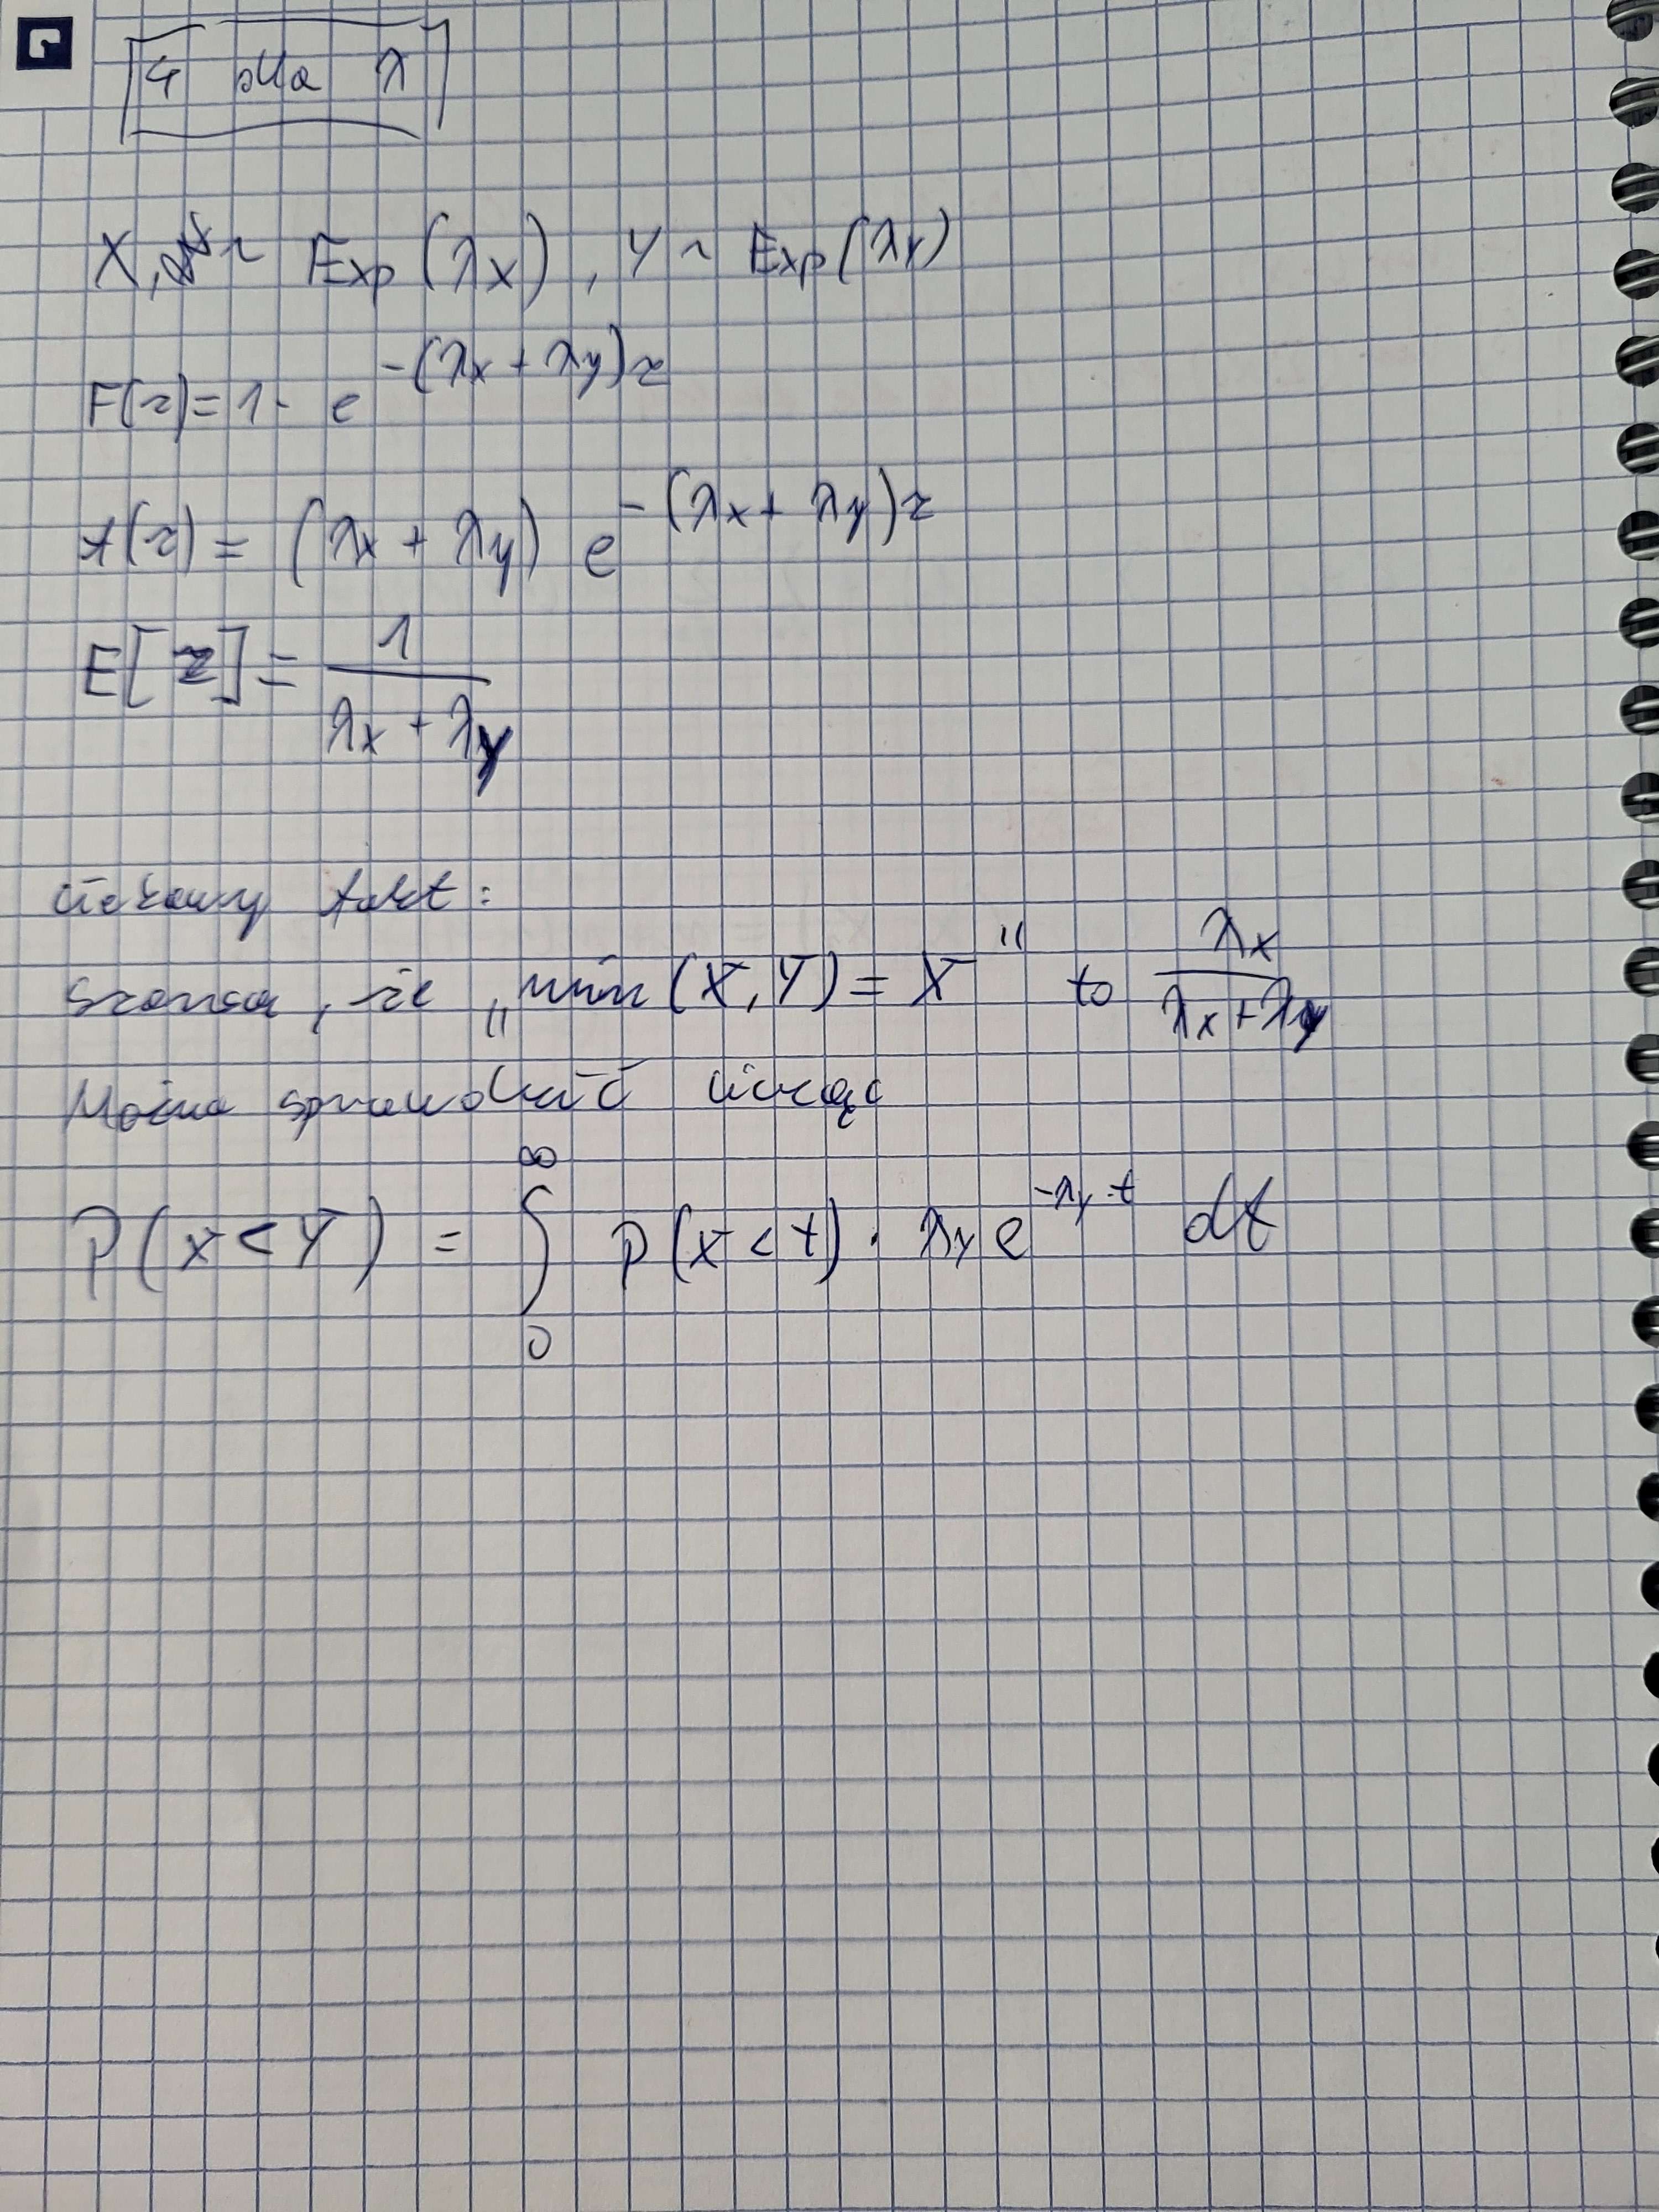 4 dwa λ
X, ~ Exp(λx), Y ~ Exp(λy)
F(z) = 1 - e^{-(λx + λy)z}
f(z) = (λx + λy) e^{-(λx + λy)z}
E[z] = \frac{1}{λx + λy}
Ciekawy fakt:
szansa, że „min(X,Y) = X" to \frac{λx}{λx + λy}
Można sprawdzić licząc
P(X < Y) = ∫_0^∞ P(X < t) · λy e^{-λy·t} dt